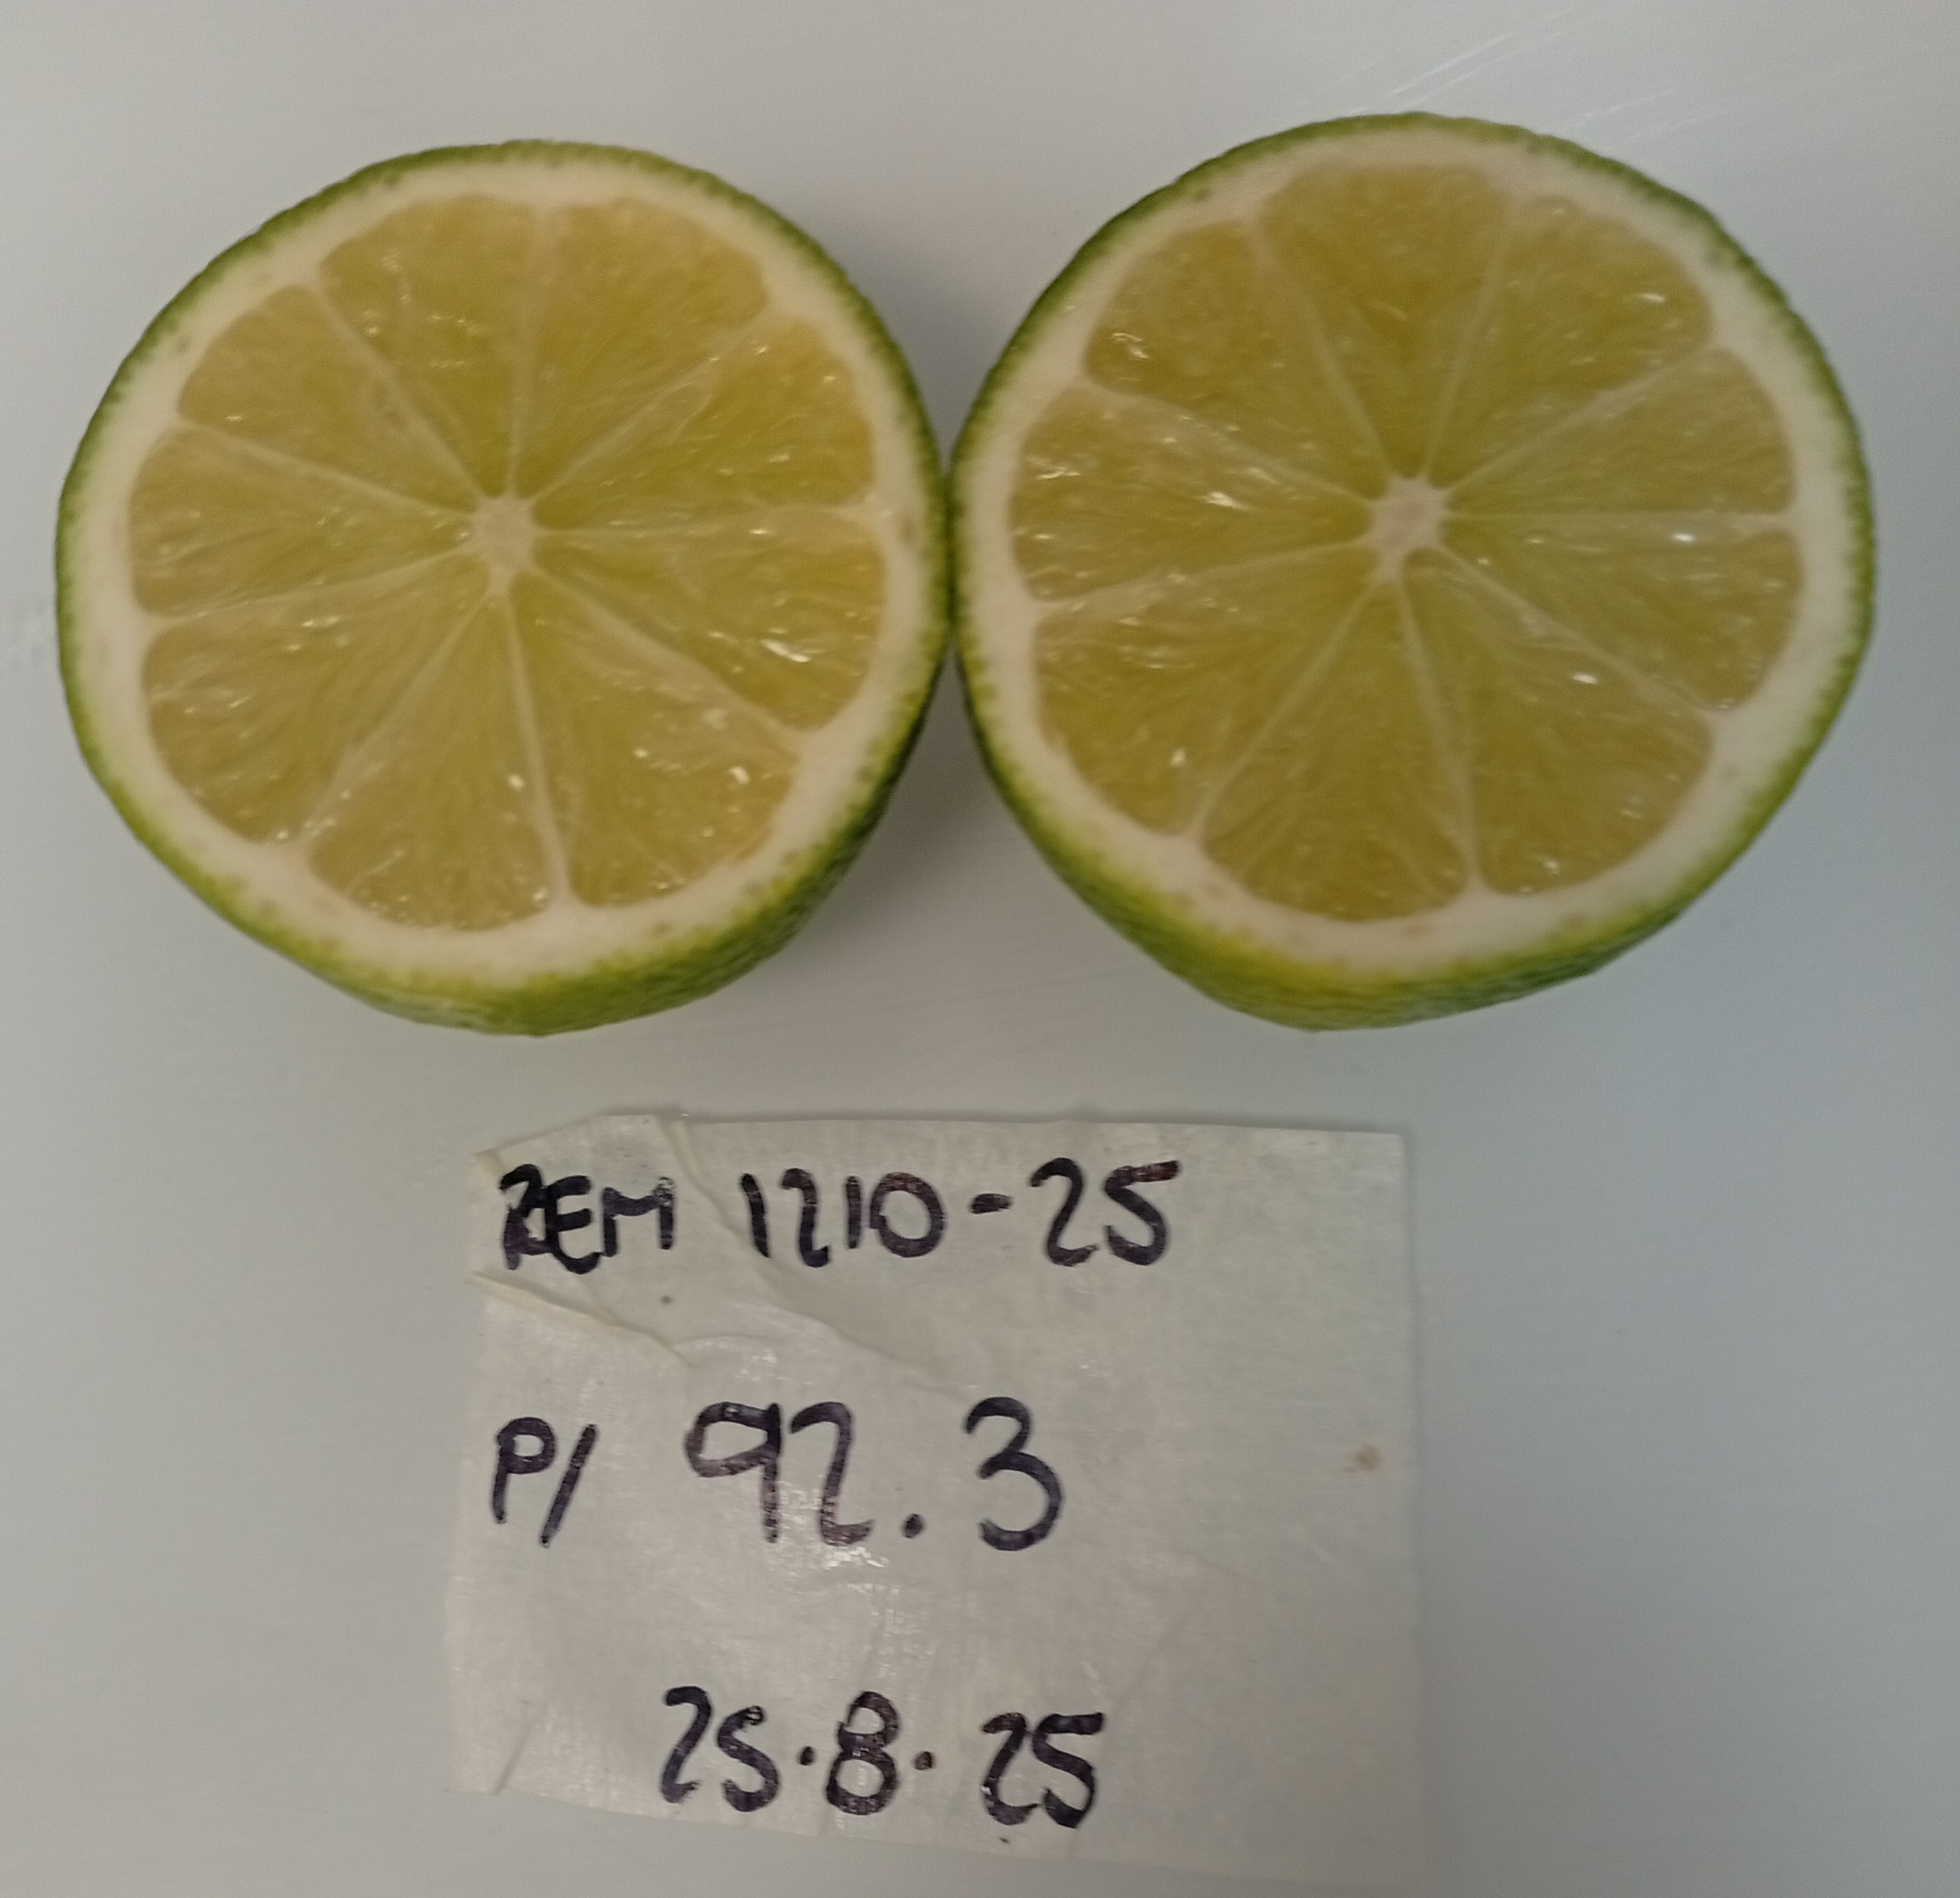 REM 1210-25
P/ 92.3
25.8.25